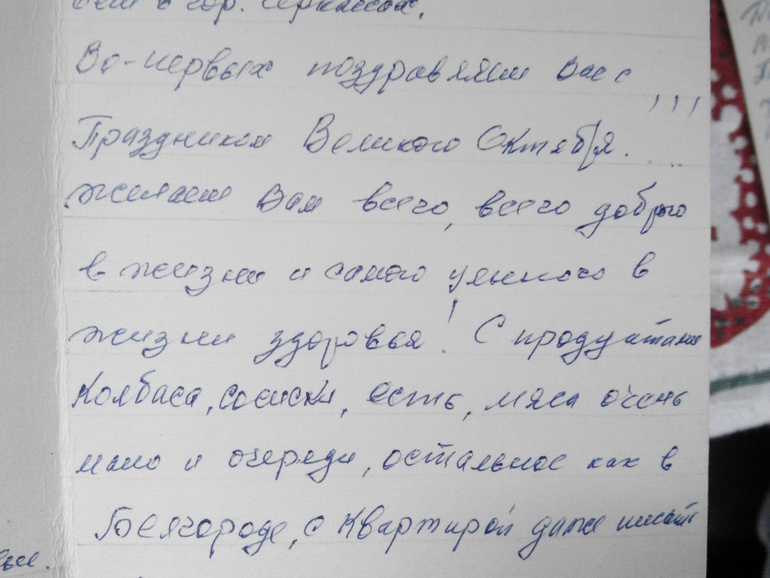 в гор. Черкассах.
Во-первых поздравляем Вас с
Праздником Великого Октября.!!!
желаем Вам всего, всего доброго
в жизни и самого ценного в
жизни здоровья! С продуктами
Колбаса, сосиски, есть, мяса очень
мало и очереди, остальное как в
Белгороде, с Квартирой даже